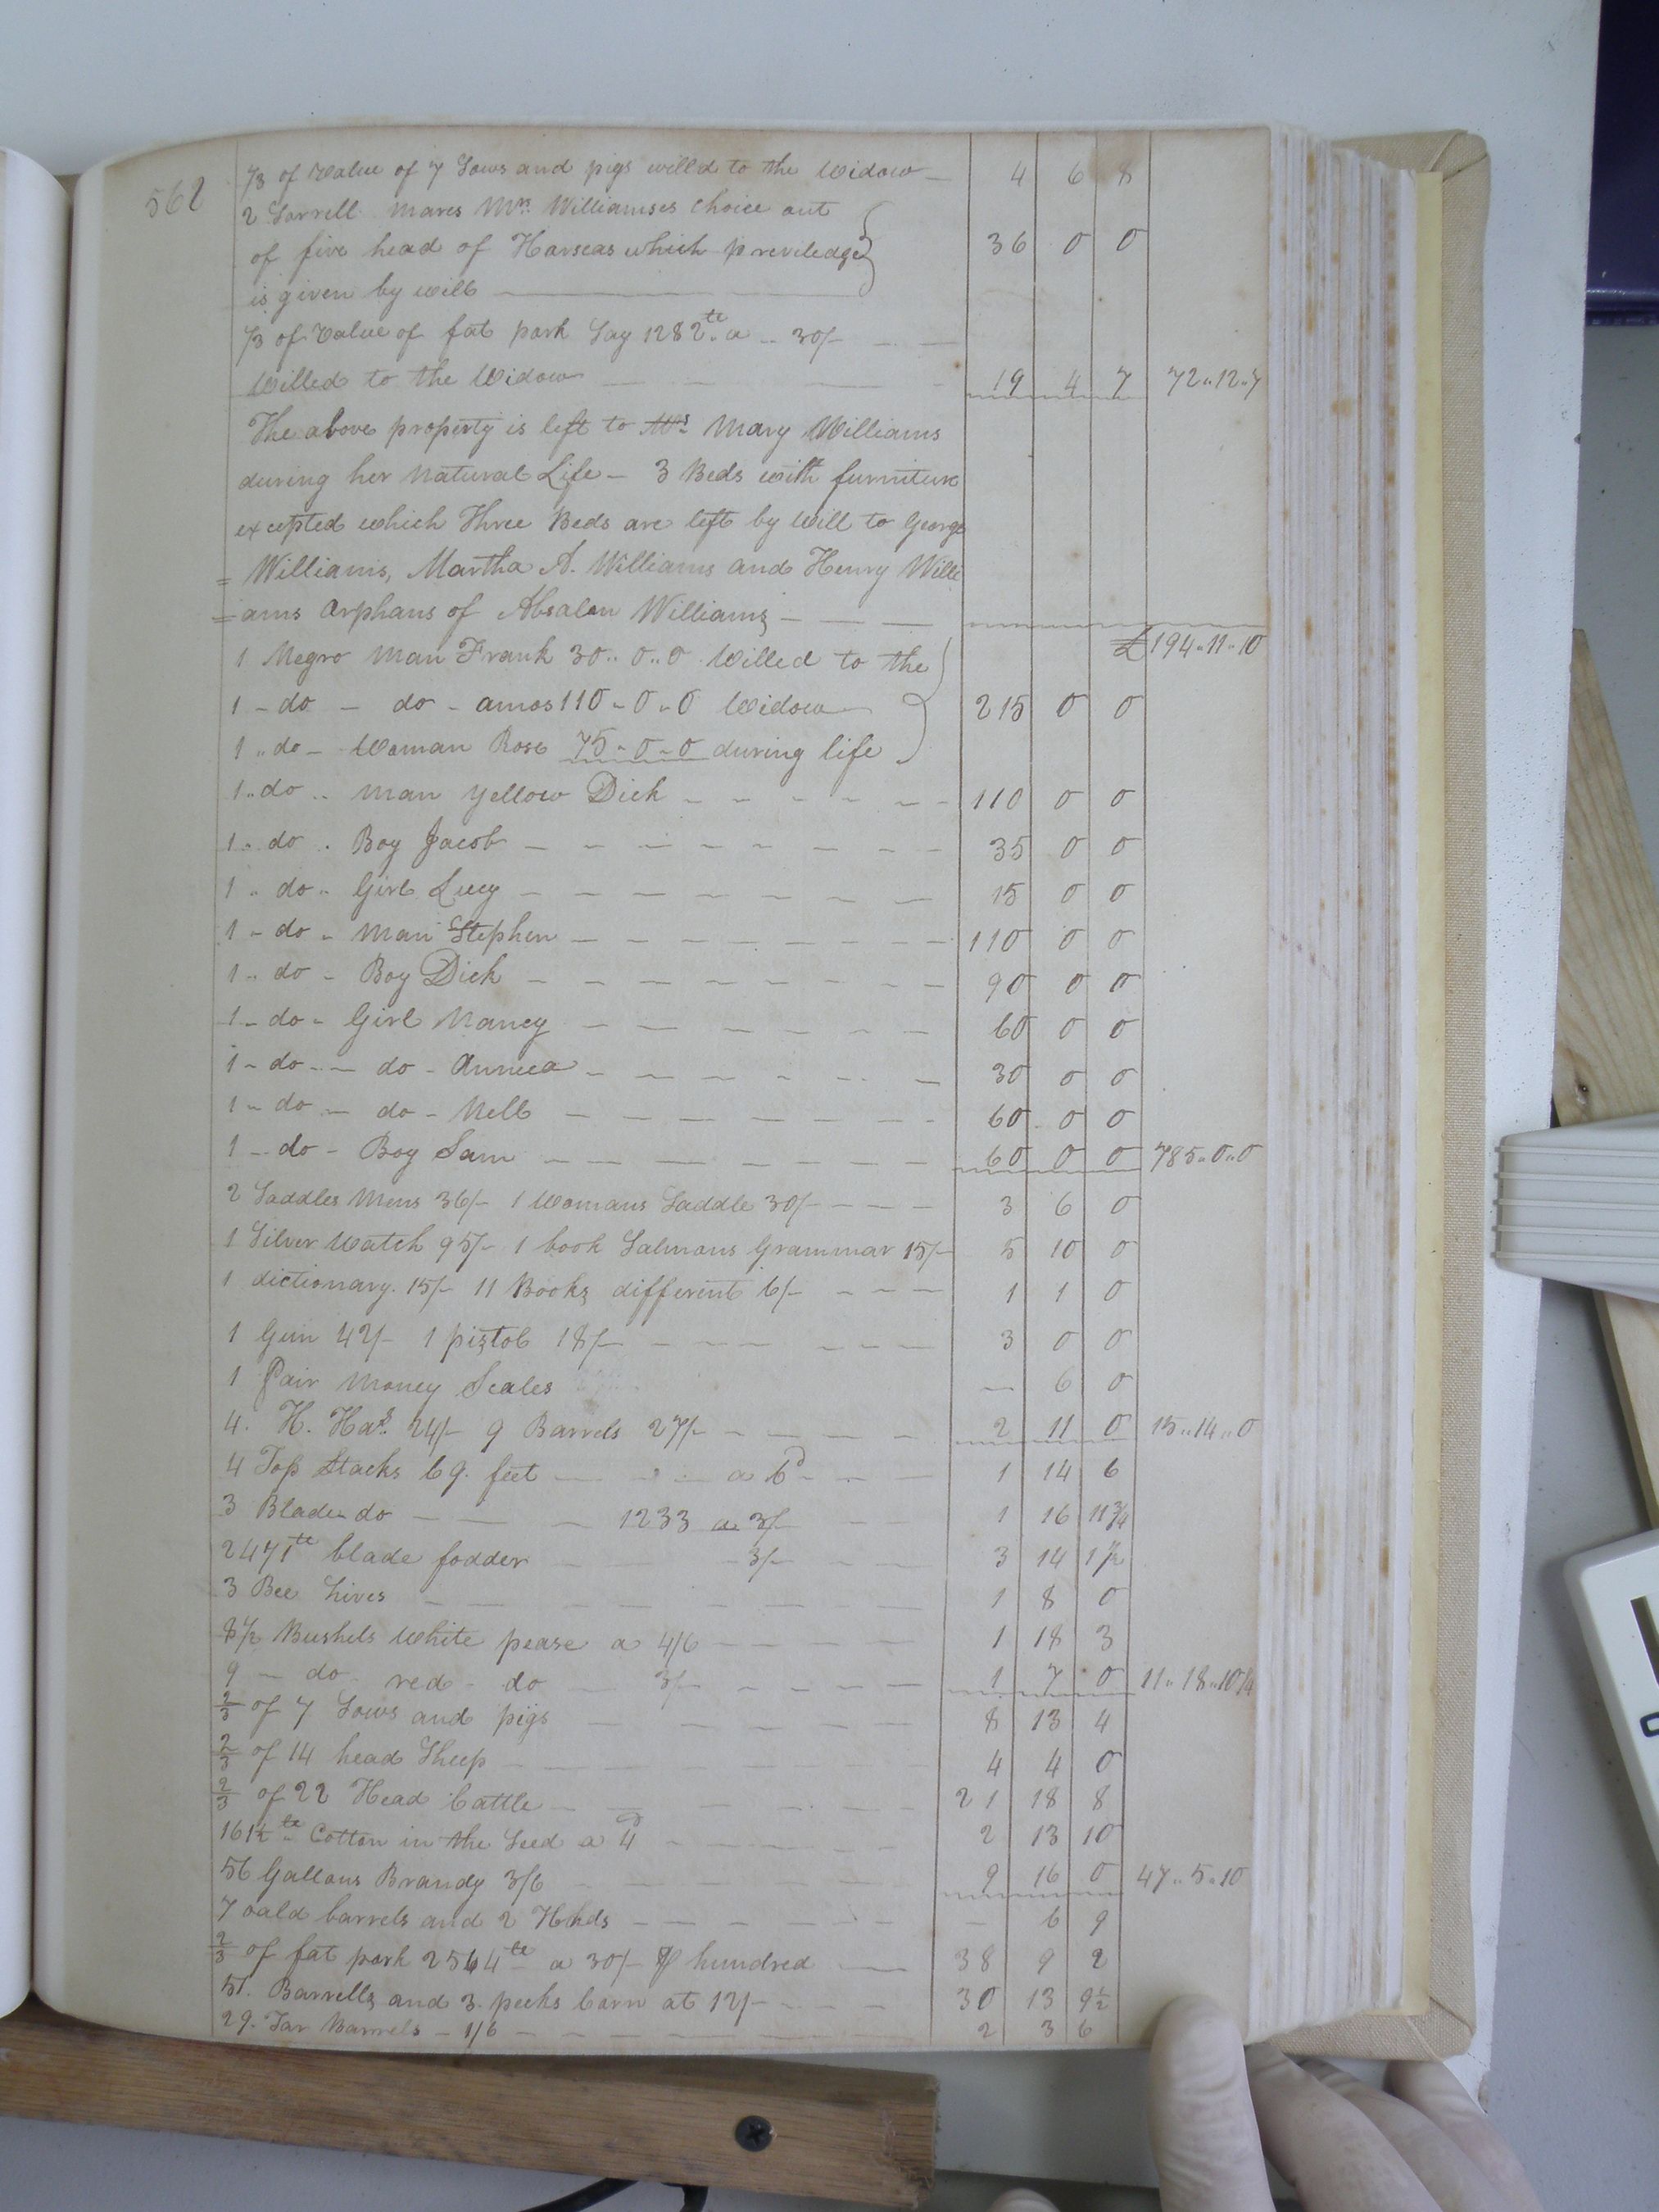 562
1/3 of Value of 7 Sows and pigs will'd to the Widow — 4 6 8
2 Sorrell mares Mrs. Williamses choice out
of five head of Horseas which previledge 36 0 0
is given by will
1/3 of Value of fat pork Say 1282 lb a .. 30/-
Willed to the Widow 19 4 7 72..12..7
The above property is left to Mrs Mary Williams
during her Natural Life — 3 Beds with furniture
excepted which Three Beds are left by Will to George
= Williams, Martha A. Williams and Henry Willi
=ams Orphans of Absalom Williams
£194..11..10
1 Negro Man Frank 30..0..0 Willed to the
1 - do - do - amos 110-0-0 Widow 215 0 0
1 .. do - Woman Rose 75-0-0 during life
1..do .. Man Yellow Dick 110 0 0
1.. do . Boy Jacob 35 0 0
1 .. do .. Girl Lucy 15 0 0
1 - do - Man Stephen 110 0 0
1 .. do - Boy Dick 90 0 0
1 - do - Girl Nancy 60 0 0
1 - do - do - Annica 30 0 0
1 - do - do - Nell 60 0 0
1 - do - Boy Sam 60 0 0 785..0..0
2 Saddles Mens 36/- 1 Womans Saddle 30/- 3 6 0
1 Silver Watch 95/- 1 book Salmons Grammar 15/- 5 10 0
1 dictionary. 15/- 11 Books different 6/- 1 1 0
1 Gun 42/- 1 pistol 18/- 3 0 0
1 Pair Money Scales — 6 0
4. H. Hds. 24/- 9 Barrels 27/- 2 11 0 15..14..0
4 Top Stacks 69. feet a 6d 1 14 6
3 Blade do 1233 a 3/- 1 16 11 3/4
2471 lb blade fodder 3/- 3 14 1 1/2
3 Bee hives 1 8 0
8 1/2 Bushels White pease a 4/6 1 18 3
9 - do - red - do 3/- 1 7 0 11..18..10 1/4
2/3 of 7 Sows and pigs 8 13 4
2/3 of 14 head Sheep 4 4 0
2/3 of 22 Head Cattle 21 18 8
161 1/2 lb Cotton in the Seed a 4d 2 13 10
56 Gallons Brandy 3/6 9 16 0 47..5..10
7 oald barrels and 2 Hhds — 6 9
2/3 of fat pork 2564 lb a 30/- ⅌ hundred 38 9 2
51. Barrells and 3. pecks Corn at 12/- 30 13 9 1/2
29. Tar Barrels - 1/6 2 3 6